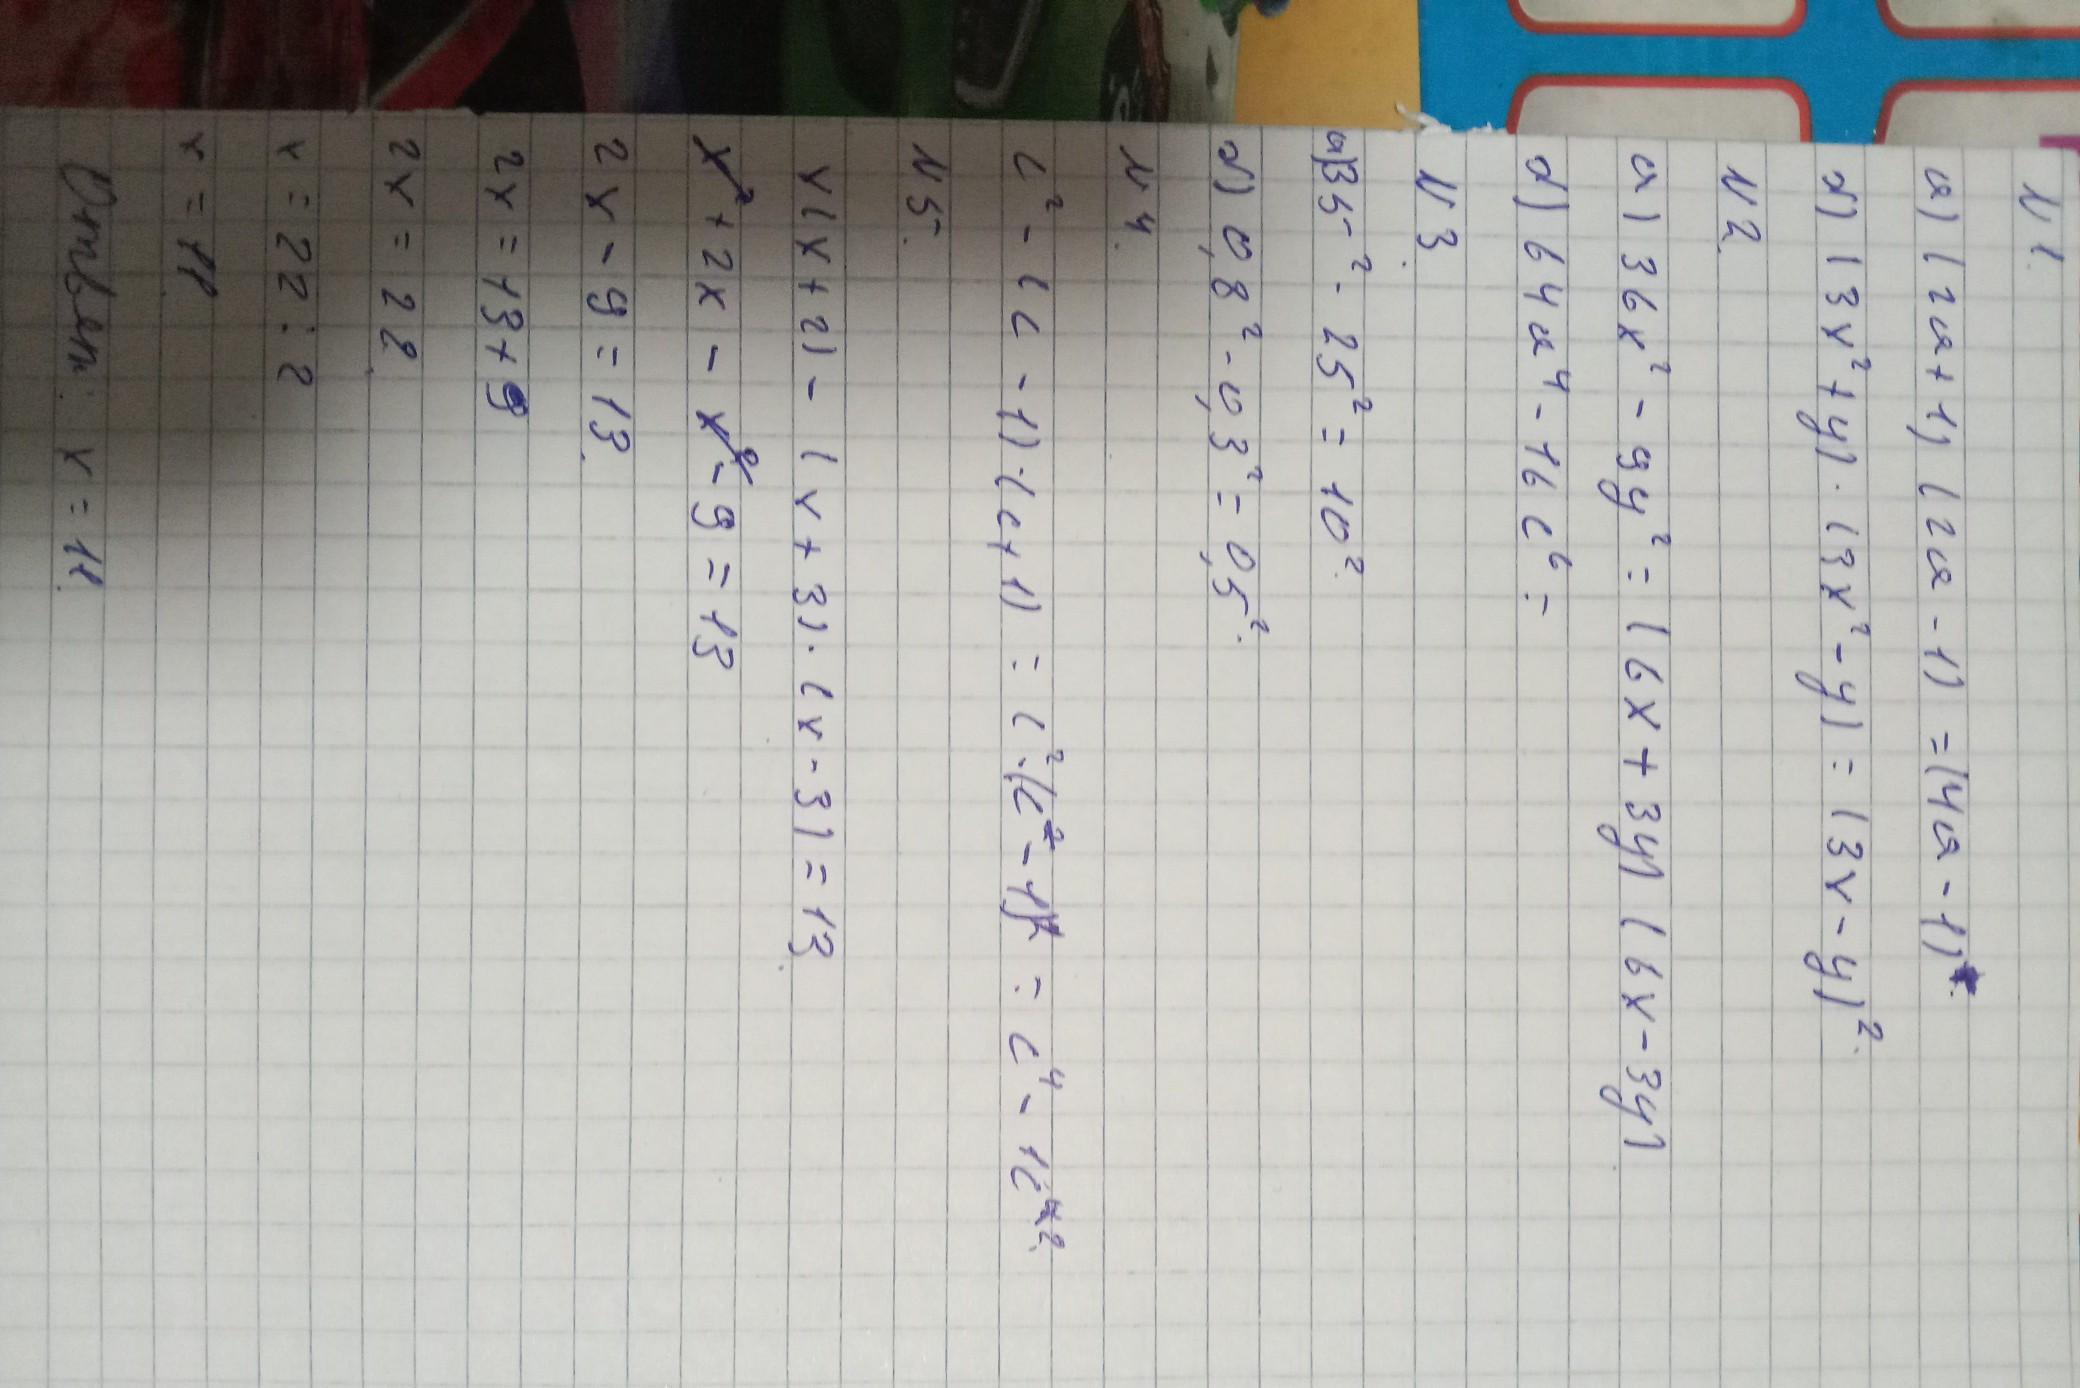 N 1.
а) (2a+1) (2a-1) = (4a-1).
б) (3x²+y)·(3x²-y) = (3x-y)².
N 2.
а) 36x² - 9y² = (6x+3y) (6x-3y)
б) 64a⁴ - 16c⁶ =
N 3.
а) 35² - 25² = 10².
б) 0,8² - 0,3² = 0,5².
N 4.
c² - (c-1)·(c+1) = c²·(c²-1) = c⁴ - 1c².
N 5.
x(x+2) - (x+3)·(x-3) = 13.
x² + 2x - x² - 9 = 13
2x - 9 = 13.
2x = 13+9
2x = 22.
x = 22:2
x = 11.
Ответ: x = 11.